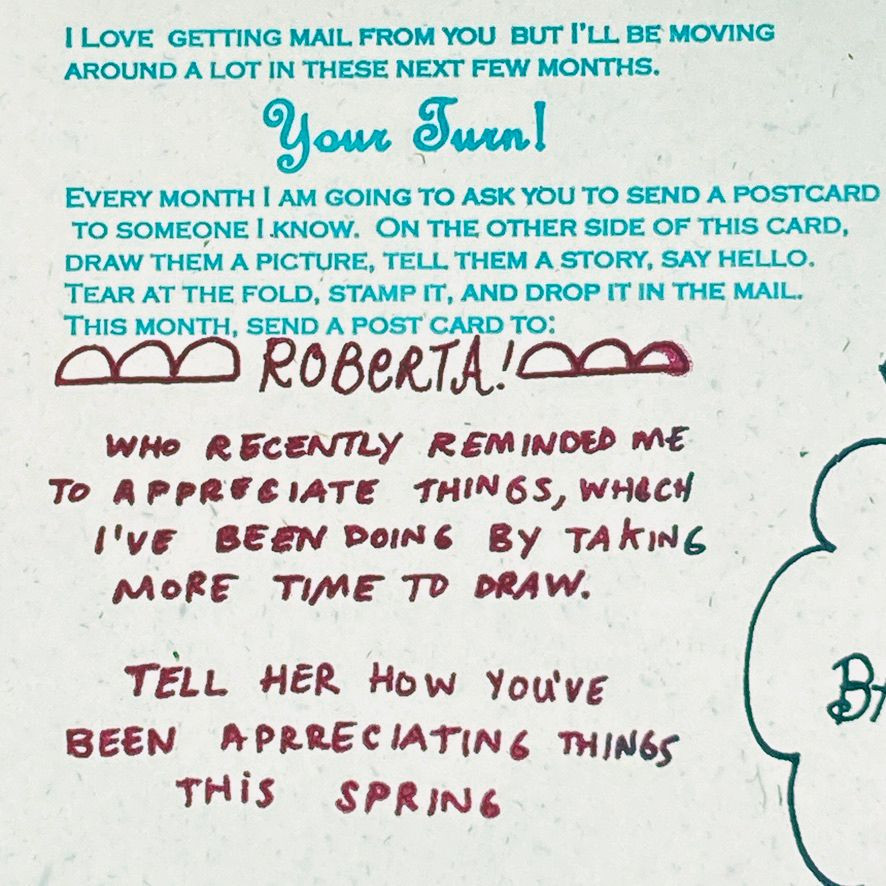 I LOVE GETTING MAIL FROM YOU BUT I'LL BE MOVING
AROUND A LOT IN THESE NEXT FEW MONTHS.
Your Turn!
EVERY MONTH I AM GOING TO ASK YOU TO SEND A POSTCARD
TO SOMEONE I KNOW. ON THE OTHER SIDE OF THIS CARD,
DRAW THEM A PICTURE, TELL THEM A STORY, SAY HELLO.
TEAR AT THE FOLD, STAMP IT, AND DROP IT IN THE MAIL.
THIS MONTH, SEND A POST CARD TO:
ROBERTA!
WHO RECENTLY REMINDED ME
TO APPRECIATE THINGS, WHICH
I'VE BEEN DOING BY TAKING
MORE TIME TO DRAW.
TELL HER HOW YOU'VE
BEEN APRRECIATING THINGS
THIS SPRING